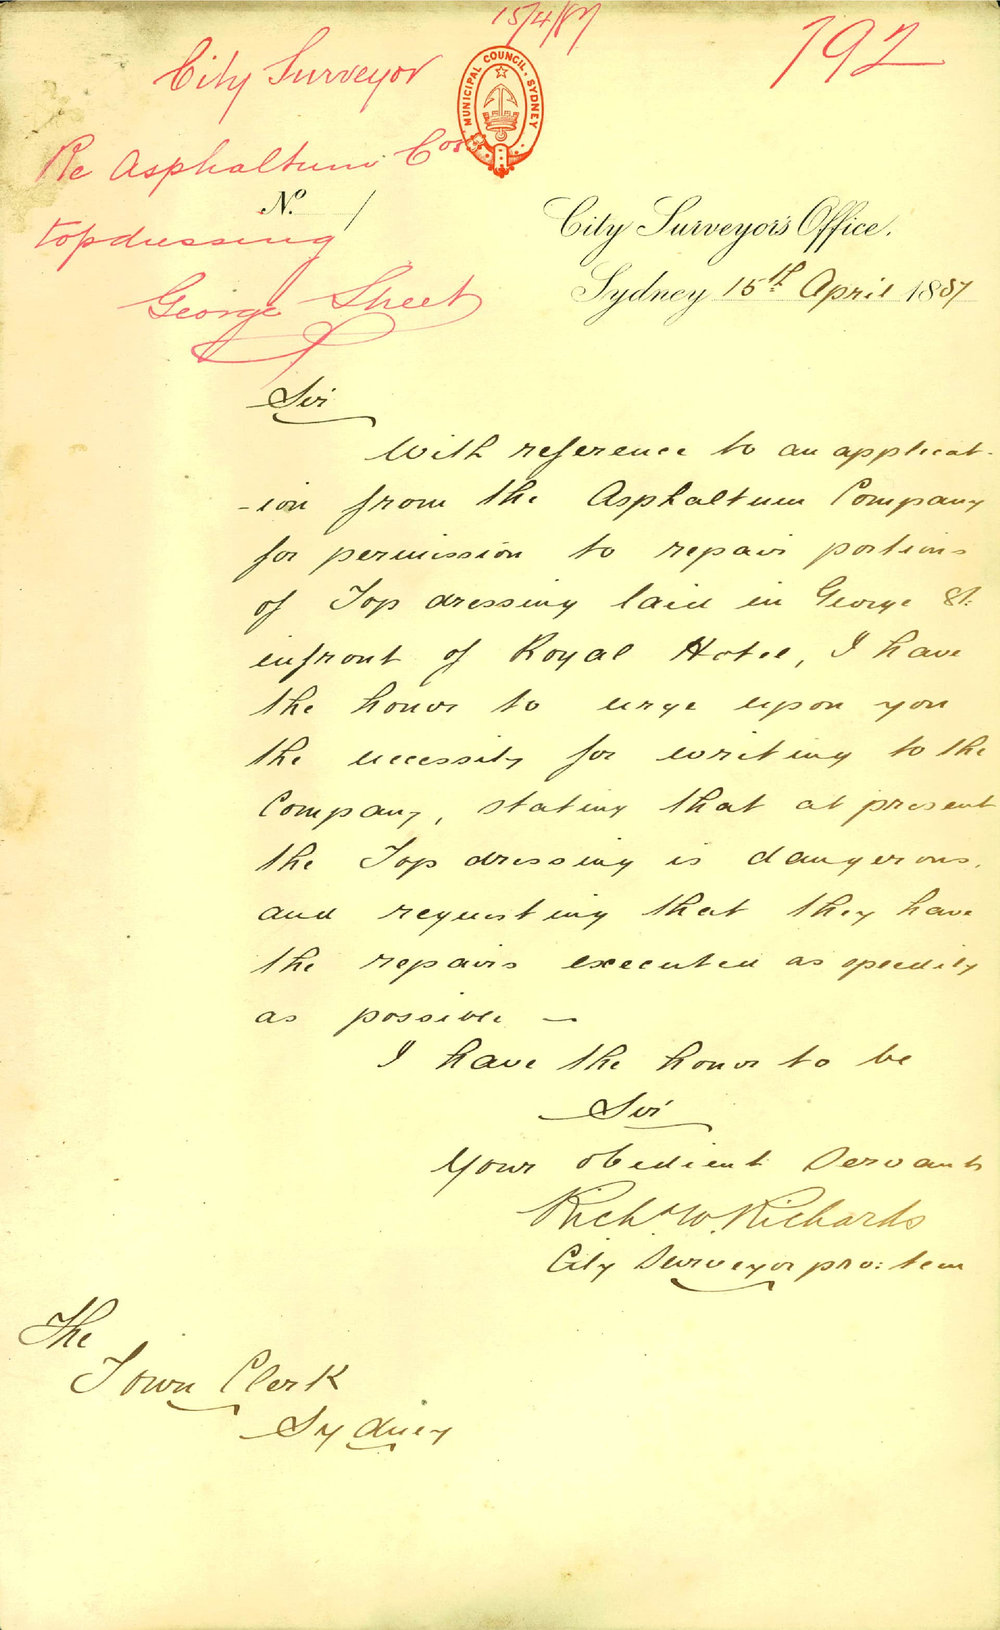 15/4/87
792
City Surveyor
MUNICIPAL COUNCIL. SYDNEY
Re Asphaltum Cos
No.
topdressing
George Street
City Surveyor's Office.
Sydney 15th April 1887
Sir
With reference to an applicat-
-ion from the Asphaltum Company
for permission to repair portions
of Top dressing laid in George St.
infront of Royal Hotel, I have
the honor to urge upon you
the necessity for writing to the
Company, stating that at present
the Top dressing is dangerous.
and requesting that they have
the repairs executed as speedily
as possible —
I have the honor to be
Sir
Your obedient Servant
Richd W. Richards
City Surveyor pro: tem
The
Town Clerk
Sydney